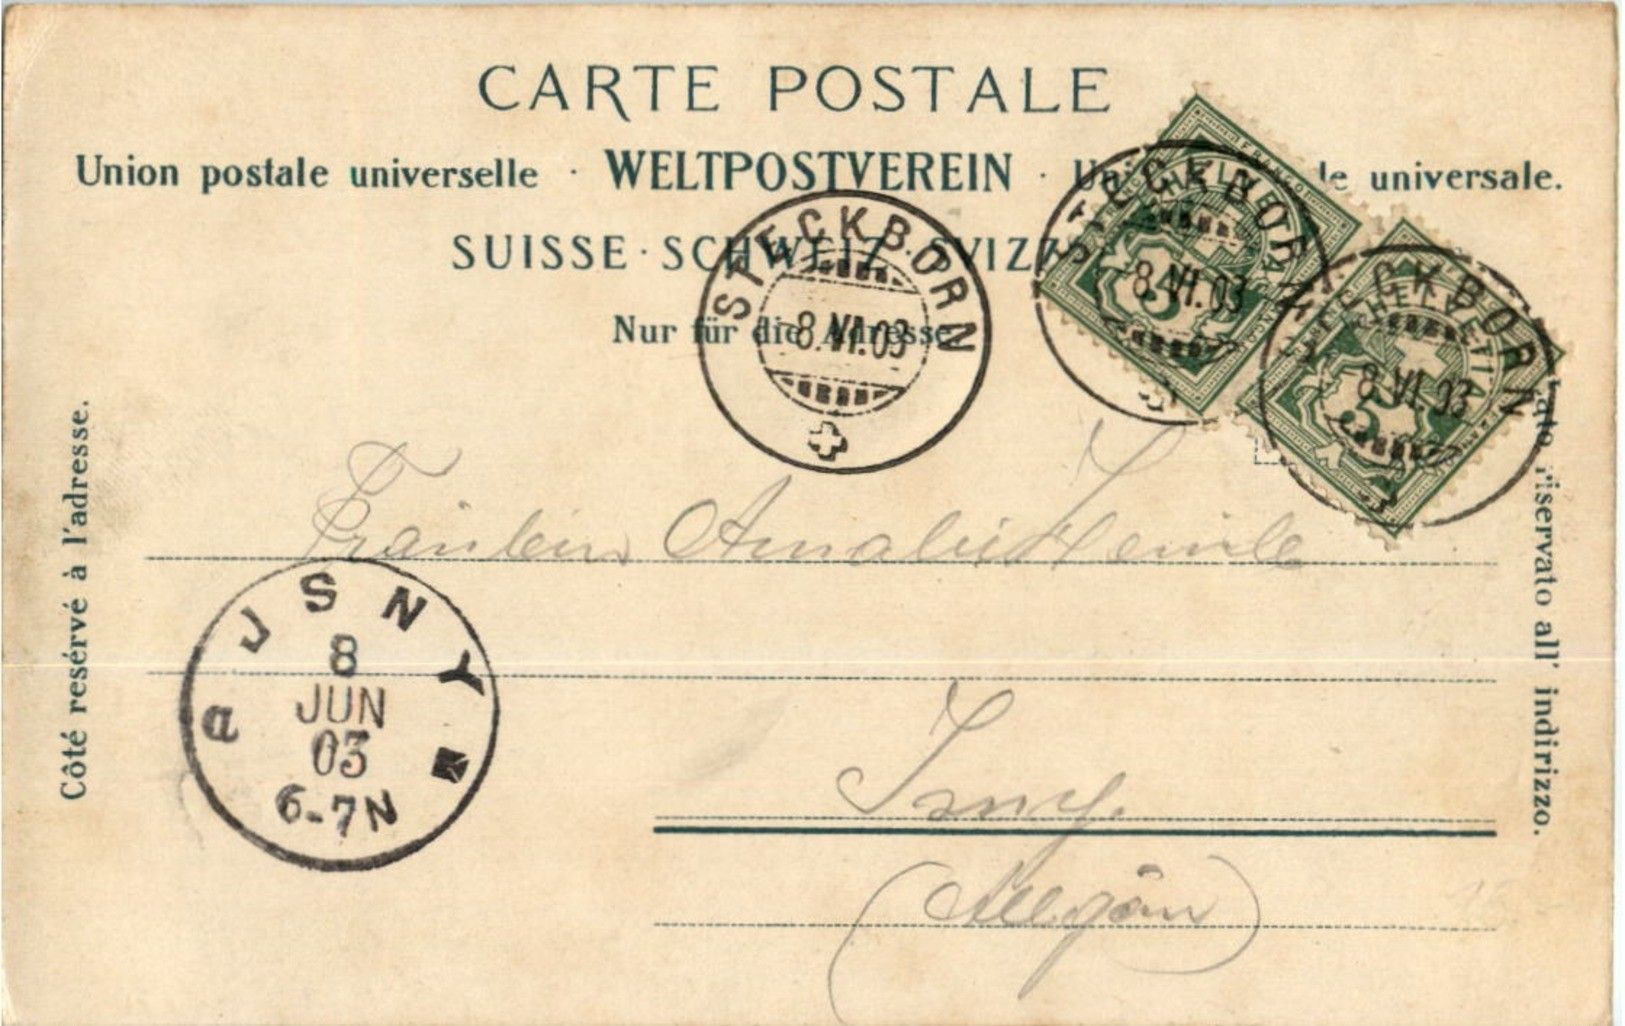 CARTE POSTALE
Union postale universelle · WELTPOSTVEREIN · universale.
SUISSE · SCHWEIZ SVIZZ
Nur für die Adresse.
STECKBORN
8.VI.03
STECKBORN
8.VI.03
HELVETIA
5
STECKBORN
8.VI.03
HELVETIA
5
Côté resérvé à l'adresse.
riservato all' indirizzo.
Fräulein Amalie Heinle
JSNY
8
JUN
03
6-7N
a
Isny.
(Allgäu)